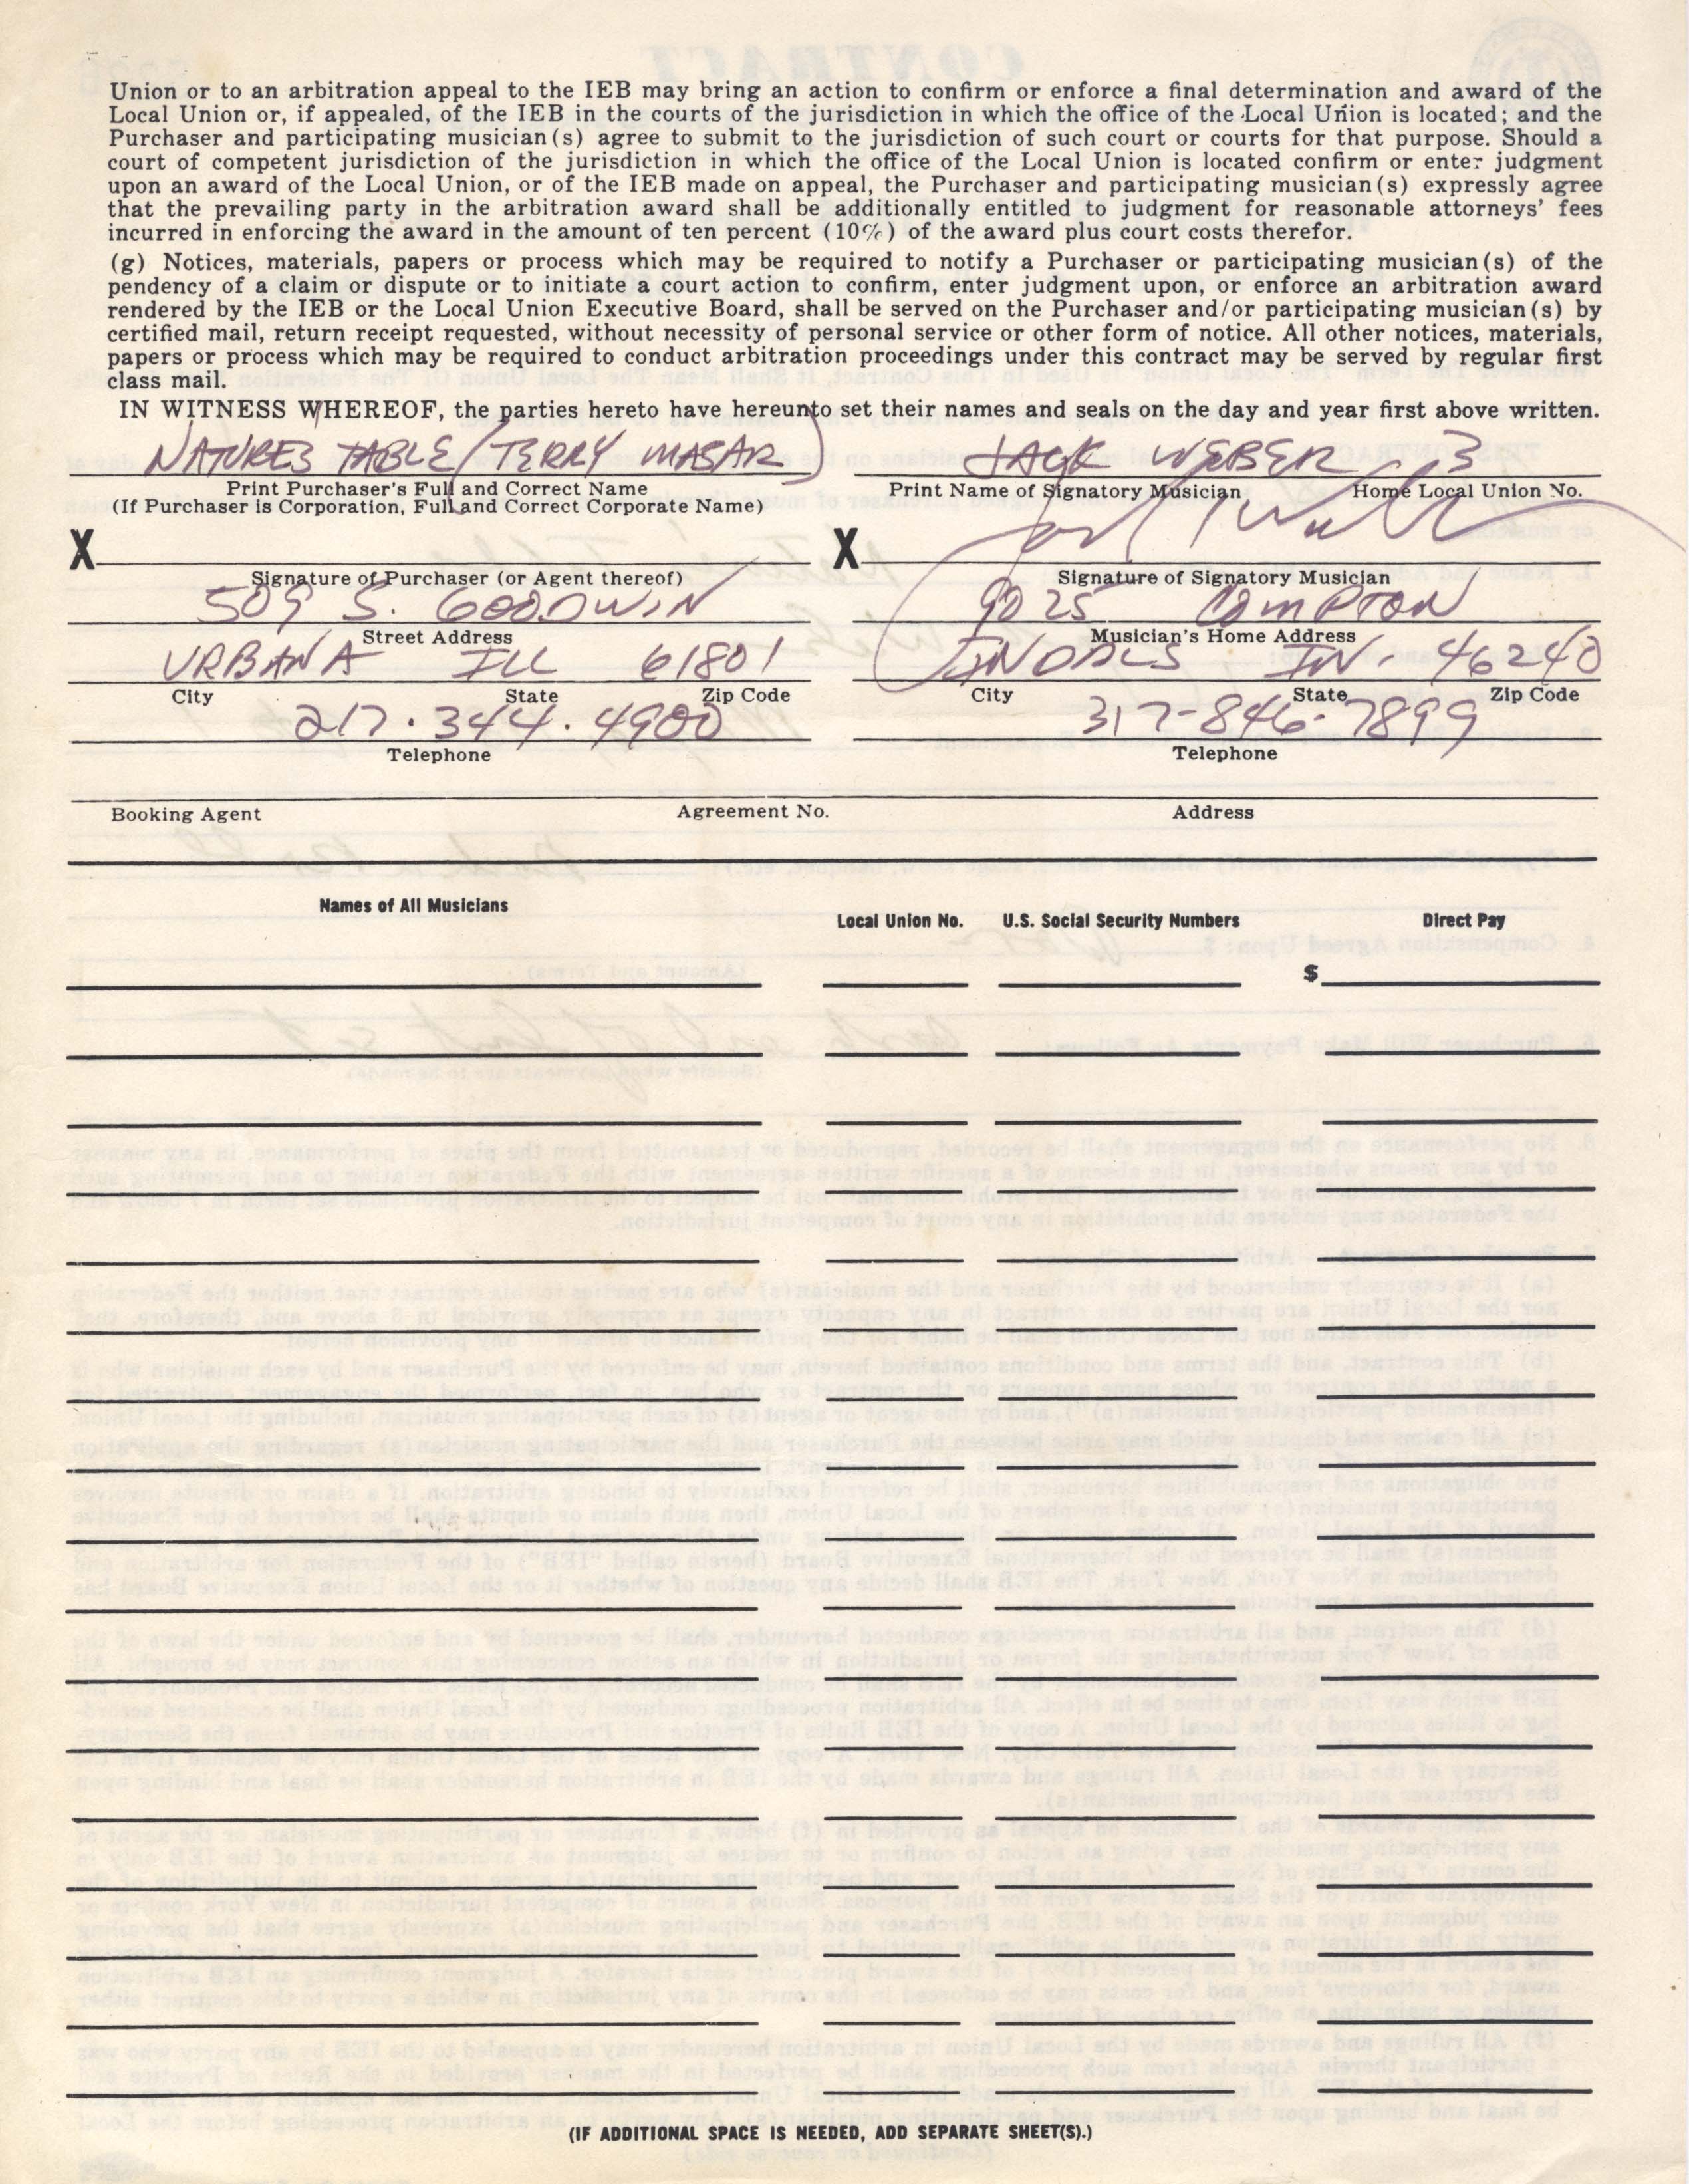 Union or to an arbitration appeal to the IEB may bring an action to confirm or enforce a final determination and award of the
Local Union or, if appealed, of the IEB in the courts of the jurisdiction in which the office of the Local Union is located; and the
Purchaser and participating musician(s) agree to submit to the jurisdiction of such court or courts for that purpose. Should a
court of competent jurisdiction of the jurisdiction in which the office of the Local Union is located confirm or enter judgment
upon an award of the Local Union, or of the IEB made on appeal, the Purchaser and participating musician(s) expressly agree
that the prevailing party in the arbitration award shall be additionally entitled to judgment for reasonable attorneys' fees
incurred in enforcing the award in the amount of ten percent (10%) of the award plus court costs therefor.
(g) Notices, materials, papers or process which may be required to notify a Purchaser or participating musician(s) of the
pendency of a claim or dispute or to initiate a court action to confirm, enter judgment upon, or enforce an arbitration award
rendered by the IEB or the Local Union Executive Board, shall be served on the Purchaser and/or participating musician(s) by
certified mail, return receipt requested, without necessity of personal service or other form of notice. All other notices, materials,
papers or process which may be required to conduct arbitration proceedings under this contract may be served by regular first
class mail.
IN WITNESS WHEREOF, the parties hereto have hereunto set their names and seals on the day and year first above written.
NATURES TABLE (TERRY MASAR) JACK WEBER 3
Print Purchaser's Full and Correct Name Print Name of Signatory Musician Home Local Union No.
(If Purchaser is Corporation, Full and Correct Corporate Name)
X X
Signature of Purchaser (or Agent thereof) Signature of Signatory Musician
509 S. GOODWIN 9025 COMPTON
Street Address Musician's Home Address
URBANA ILL 61801 INDPLS IN. 46240
City State Zip Code City State Zip Code
217.344.4900 317-846-7899
Telephone Telephone
Booking Agent Agreement No. Address
Names of All Musicians Local Union No. U.S. Social Security Numbers Direct Pay
$
(IF ADDITIONAL SPACE IS NEEDED, ADD SEPARATE SHEET(S).)